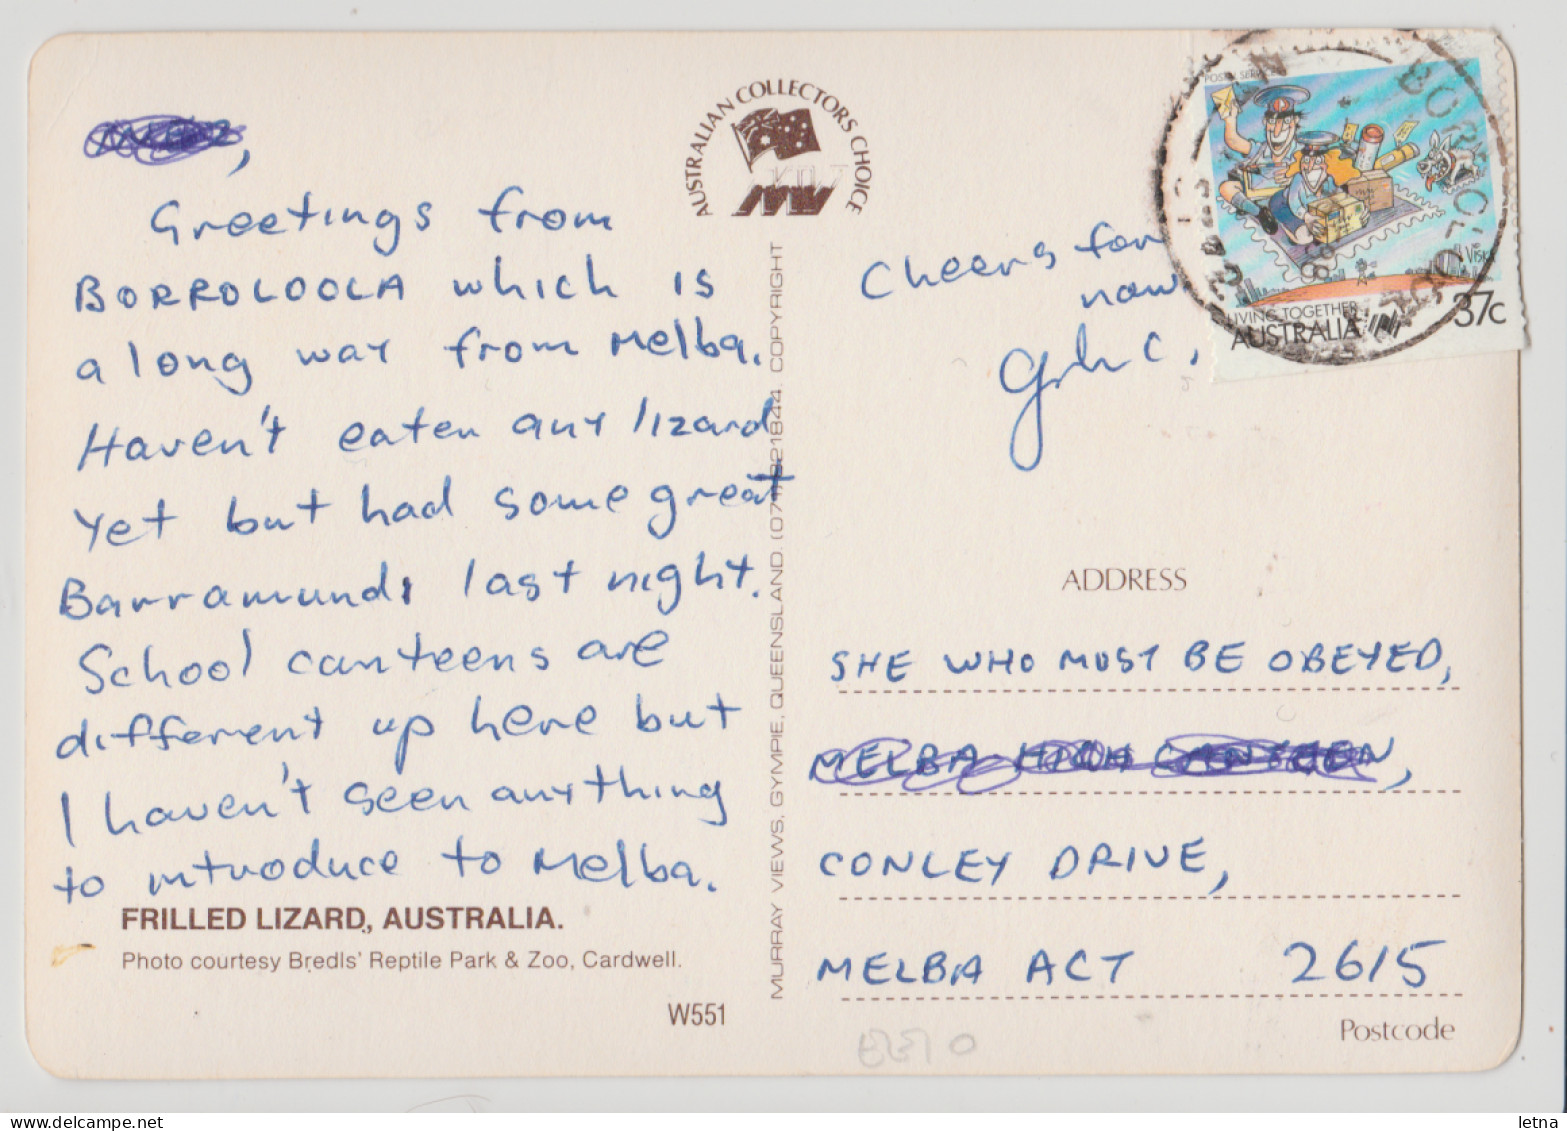 Greetings from
BORROLOOLA which is
a long way from Melba.
Haven't eaten any lizard
yet but had some great
Barramundi last night.
School canteens are
different up here but
I haven't seen anything
to introduce to Melba.
FRILLED LIZARD, AUSTRALIA.
Photo courtesy Bredls' Reptile Park & Zoo, Cardwell.
W551
AUSTRALIAN COLLECTORS CHOICE
MURRAY VIEWS, GYMPIE, QUEENSLAND. (071) 821844. COPYRIGHT
Cheers for
now
POSTAL SERVICES
LIVING TOGETHER
AUSTRALIA
37c
BORROLOOLA
ADDRESS
SHE WHO MUST BE OBEYED,
MELBA HIGH CANTEEN,
CONLEY DRIVE,
MELBA ACT 2615
Postcode
letna